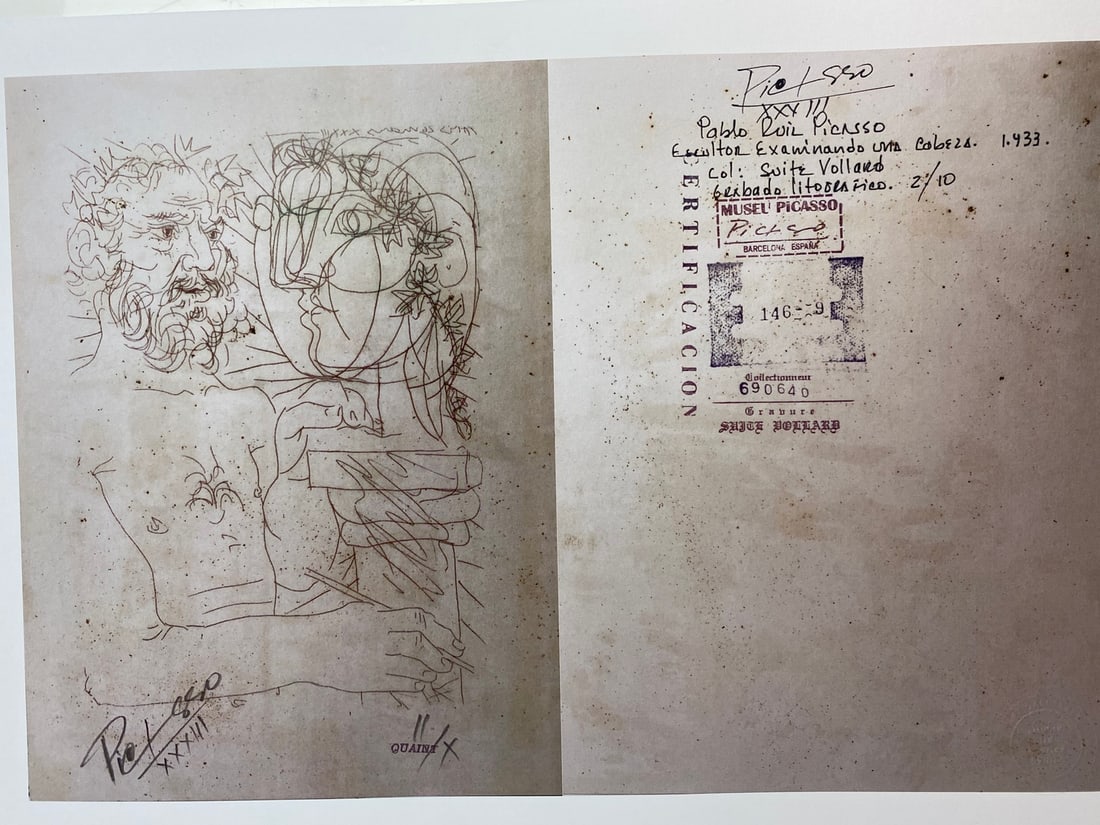 Picasso
XXXIII
II/X
QUAINT
Picasso
XXXIII
Pablo Ruiz Picasso
Escultor Examinando una Cabeza. 1.933.
Col: Suite Vollard
Grabado litografico. 2/10
CERTIFICACION
MUSEU PiCASSO
Picasso
BARCELONA ESPAÑA
146-9
Collectionneur
690640
Gravure
SUITE VOLLARD